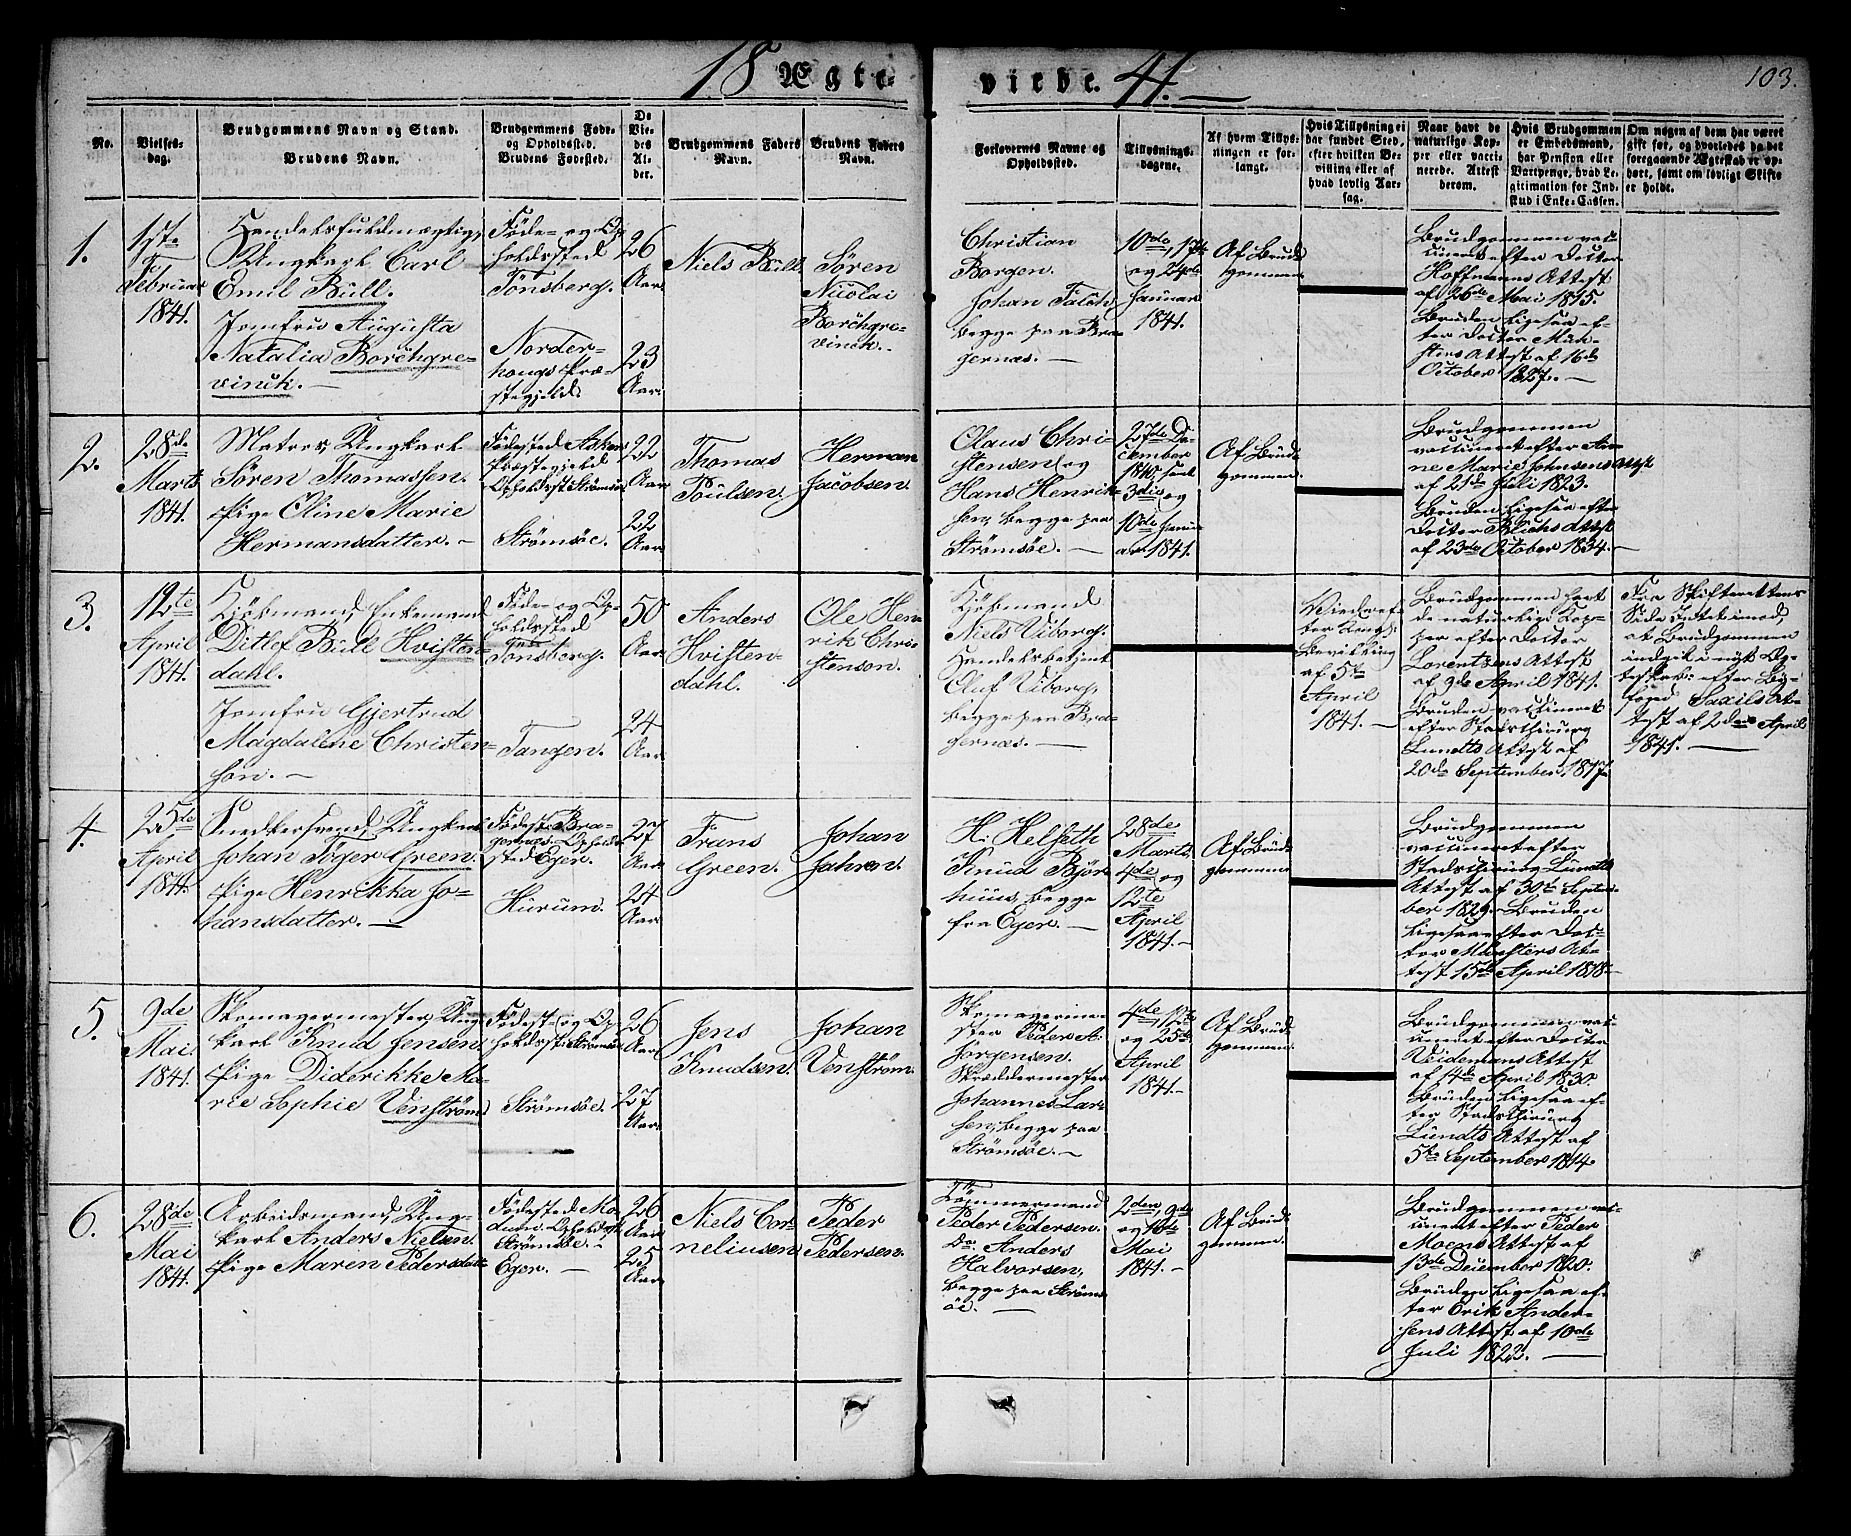 18 Ægte-
vivde. 41.
103.
No.
Vielses-
dag.
Brudgommens Navn og Stand.
Brudens Navn.
Brudgommens Føde-
og Opholdssted.
Brudens Fødested.
De
Vie-
des
Al-
der.
Brudgommens Faders
Navn.
Brudens Faders
Navn.
Forlovernes Navne og
Opholdssted.
Tillysnings-
dagene.
Af hvem Tillys-
ningen er for-
langt.
Hvis Tillysning ei
har fundet Sted,
efter hvilken Be-
villing eller af
hvad lovlig Aar-
sag.
Naar havt de
naturlige Kop-
per eller vacci-
nerede. Attest
derom.
Hvis Brudgommen
er Embedsmand,
har Pension eller
Vartpenge, hvad Le-
gitimation for Ind-
skud i Enke-Cassen.
Om nogen af dem har været
gift før, og hvorledes da det
foregaaende Ægteskab er op-
hørt, samt om lovligt Skifte
er holdt.
1.
1ste
Februar
1841.
Handelsfuldmægtig,
Ungkarl Carl
Emil Bull.
Jomfru Augusta
Natalia Borchgre-
vinck. —
Føde- og Op-
holdssted
Tönsberg.
Norder-
hougs Præ-
stegjeld.
26
Aar.
23
Aar.
Niels Bull.
Søren
Nicolai
Borchgre-
vinck.
Christian
Borgen.
Johan Falch
begge paa Bra-
gernæs. —
10de, 17de
og 24de
Januar
1841.
Af Brud-
gommen.
Brudgommen vac-
cineret efter Doctor
Hoffmanns Attest
af 26de Mai 1815.
Bruden ligesaa ef-
ter Doctor Mün-
sters Attest af 16de
October 1827. —
2.
28de
Marts
1841.
Matros Ungkarl
Sören Thomassen.
Pige Oline Marie
Hermansdatter. —
Födested Asker
Præstegjeld
Opholdsst: Strömsöe
Strömsöe.
22
Aar.
22
Aar.
Thomas
Poulsen.
Herman
Jacobsen.
Olaus Chri-
stensen og
Hans Henrik-
sen, begge paa
Strömsöe. —
27de De-
cember
1840, samt
3die og
10de Janu-
ar 1841.
Af Brud-
gommen.
Brudgommen
vaccineret efter An-
ne Marie Johnsens Attest
af 21de Juli 1823.
Bruden ligesaa efter
Doctor Blichs Attest
af 23de October 1834. —
3.
12te
April
1841.
Kjöbmand, Enkemand
Ditlef Bull Hvisten-
dahl.
Jomfru Gjertrud
Magdalene Christen-
sen. —
Föde- og Op-
holdssted
Tönsberg.
Tangen.
50
Aar.
24
Aar.
Anders
Hvisten-
dahl.
Ole Hen-
rik Chri-
stensen.
Kjöbmand
Niels Viborg.
Handelsbetjent
Oluf Viborg,
begge paa Bra-
gernæs. —
Viede ef-
ter Kongl:
Bevilling
af 5te
April
1841. —
Brudgommen havt
de naturlige Kop-
per efter Doctor
Lorentzens Attest
af 9de April 1841.
Bruden vaccineret
efter Stadschirurg
Lundts Attest af
20de September 1817.
Fra Skifterettens
Side Intet imod,
at Brudgommen
indgik i nyt Æg-
teskab: efter By-
foged Saxils At-
test af 2den April
1841. —
4.
25de
April
1841.
Snedkersvend, Ungkarl
Johan Jöger Green.
Pige Henrikka Jo-
hansdatter. —
Födest: Bra-
gernæs. Ophold-
sted Eger.
Hurum.
27
Aar.
24
Aar.
Frans
Green.
Johan
Jahren.
H: Helseth
Knud Björ-
huus, begge
fra Eger. —
28de
Marts,
4de og
12te
April
1841. —
Af Brud-
gommen.
Brudgommen
vaccineret efter
Stadschirurg Lundts
Attest af 30te Septem-
ber 1829. Bruden
ligesaa efter Doc-
tor Münsters At-
test 15de April 1818. —
5.
9de
Mai
1841.
Skomagermester, Ung-
karl Knud Jensen
Pige Diderikke Ma-
rie Sophie Venström.
Födest: og Op-
holdsst: Strömsöe
Strömsöe.
26
Aar.
27
Aar.
Jens
Knudsen.
Johan
Venström.
Skomagerme-
ster Peder A.
Jörgensen.
Skræddermester
Johannes Lar-
sen, begge paa
Strömsöe. —
4de, 17de
og 25de
April
1841. —
Af Brud-
gommen.
Brudgommen vac-
cineret efter Doctor
Veidemans Attest
af 14de April 1830.
Bruden ligesaa ef-
ter Stadschirurg
Lundts Attest af
5te September 1814.
6.
28de
Mai
1841.
Arbeidsmand, Ung-
karl Anders Nielsen.
Pige Maren Pedersdat:
Födested Mo-
dum. Opholdsst:
Strömsöe. —
Eger. —
26
Aar.
25
Aar.
Niels Cor-
neliusen.
Peder
Pedersen.
Tömmermand
Peder Pedersen.
Do. Anders
Halvorsen,
begge paa Ströms-
öe. —
2den, 9de
og 16de
Mai
1841. —
Af Brud-
gommen.
Brudgommen vac-
cineret efter Peder
Moens Attest af
13de December 1820.
Bruden ligesaa ef-
ter Erik Ander-
sens Attest af 10de
Juli 1822. —